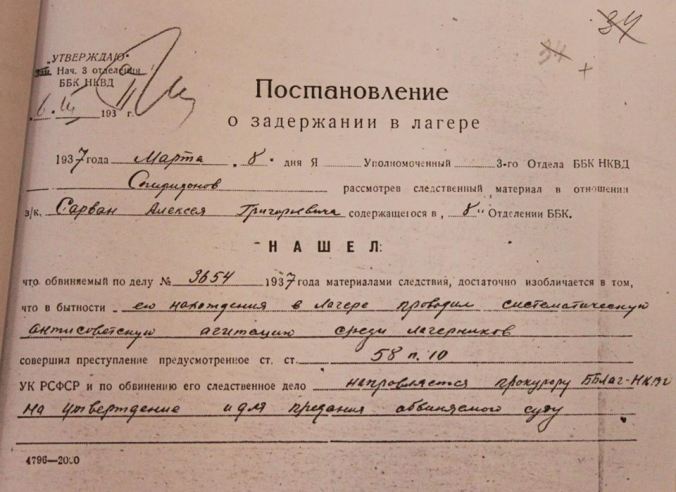 34
34
"УТВЕРЖДАЮ"
Нач. 3 отделения
ББК НКВД
193 г.
Постановление
о задержании в лагере
1937 года Марта 8 дня Я Уполномоченный 3-го Отдела ББК НКВД
Спиридонов рассмотрев следственный материал в отношении
з/к. Сарван Алексея Григорьевича содержащегося в „ 8 " Отделении ББК.
НАШЕЛ:
что обвиняемый по делу № 3654 1937 года материалами следствия, достаточно изобличается в том,
что в бытности его нахождения в лагере проводил систематическую
антисоветскую агитацию среди лагерников
совершил преступление предусмотренное ст. ст. 58 п. 10
УК РСФСР и по обвинению его следственное дело направляется прокурору ББлаг-НКВД
на утверждение и для предания обвиняемого суду
4796—2000